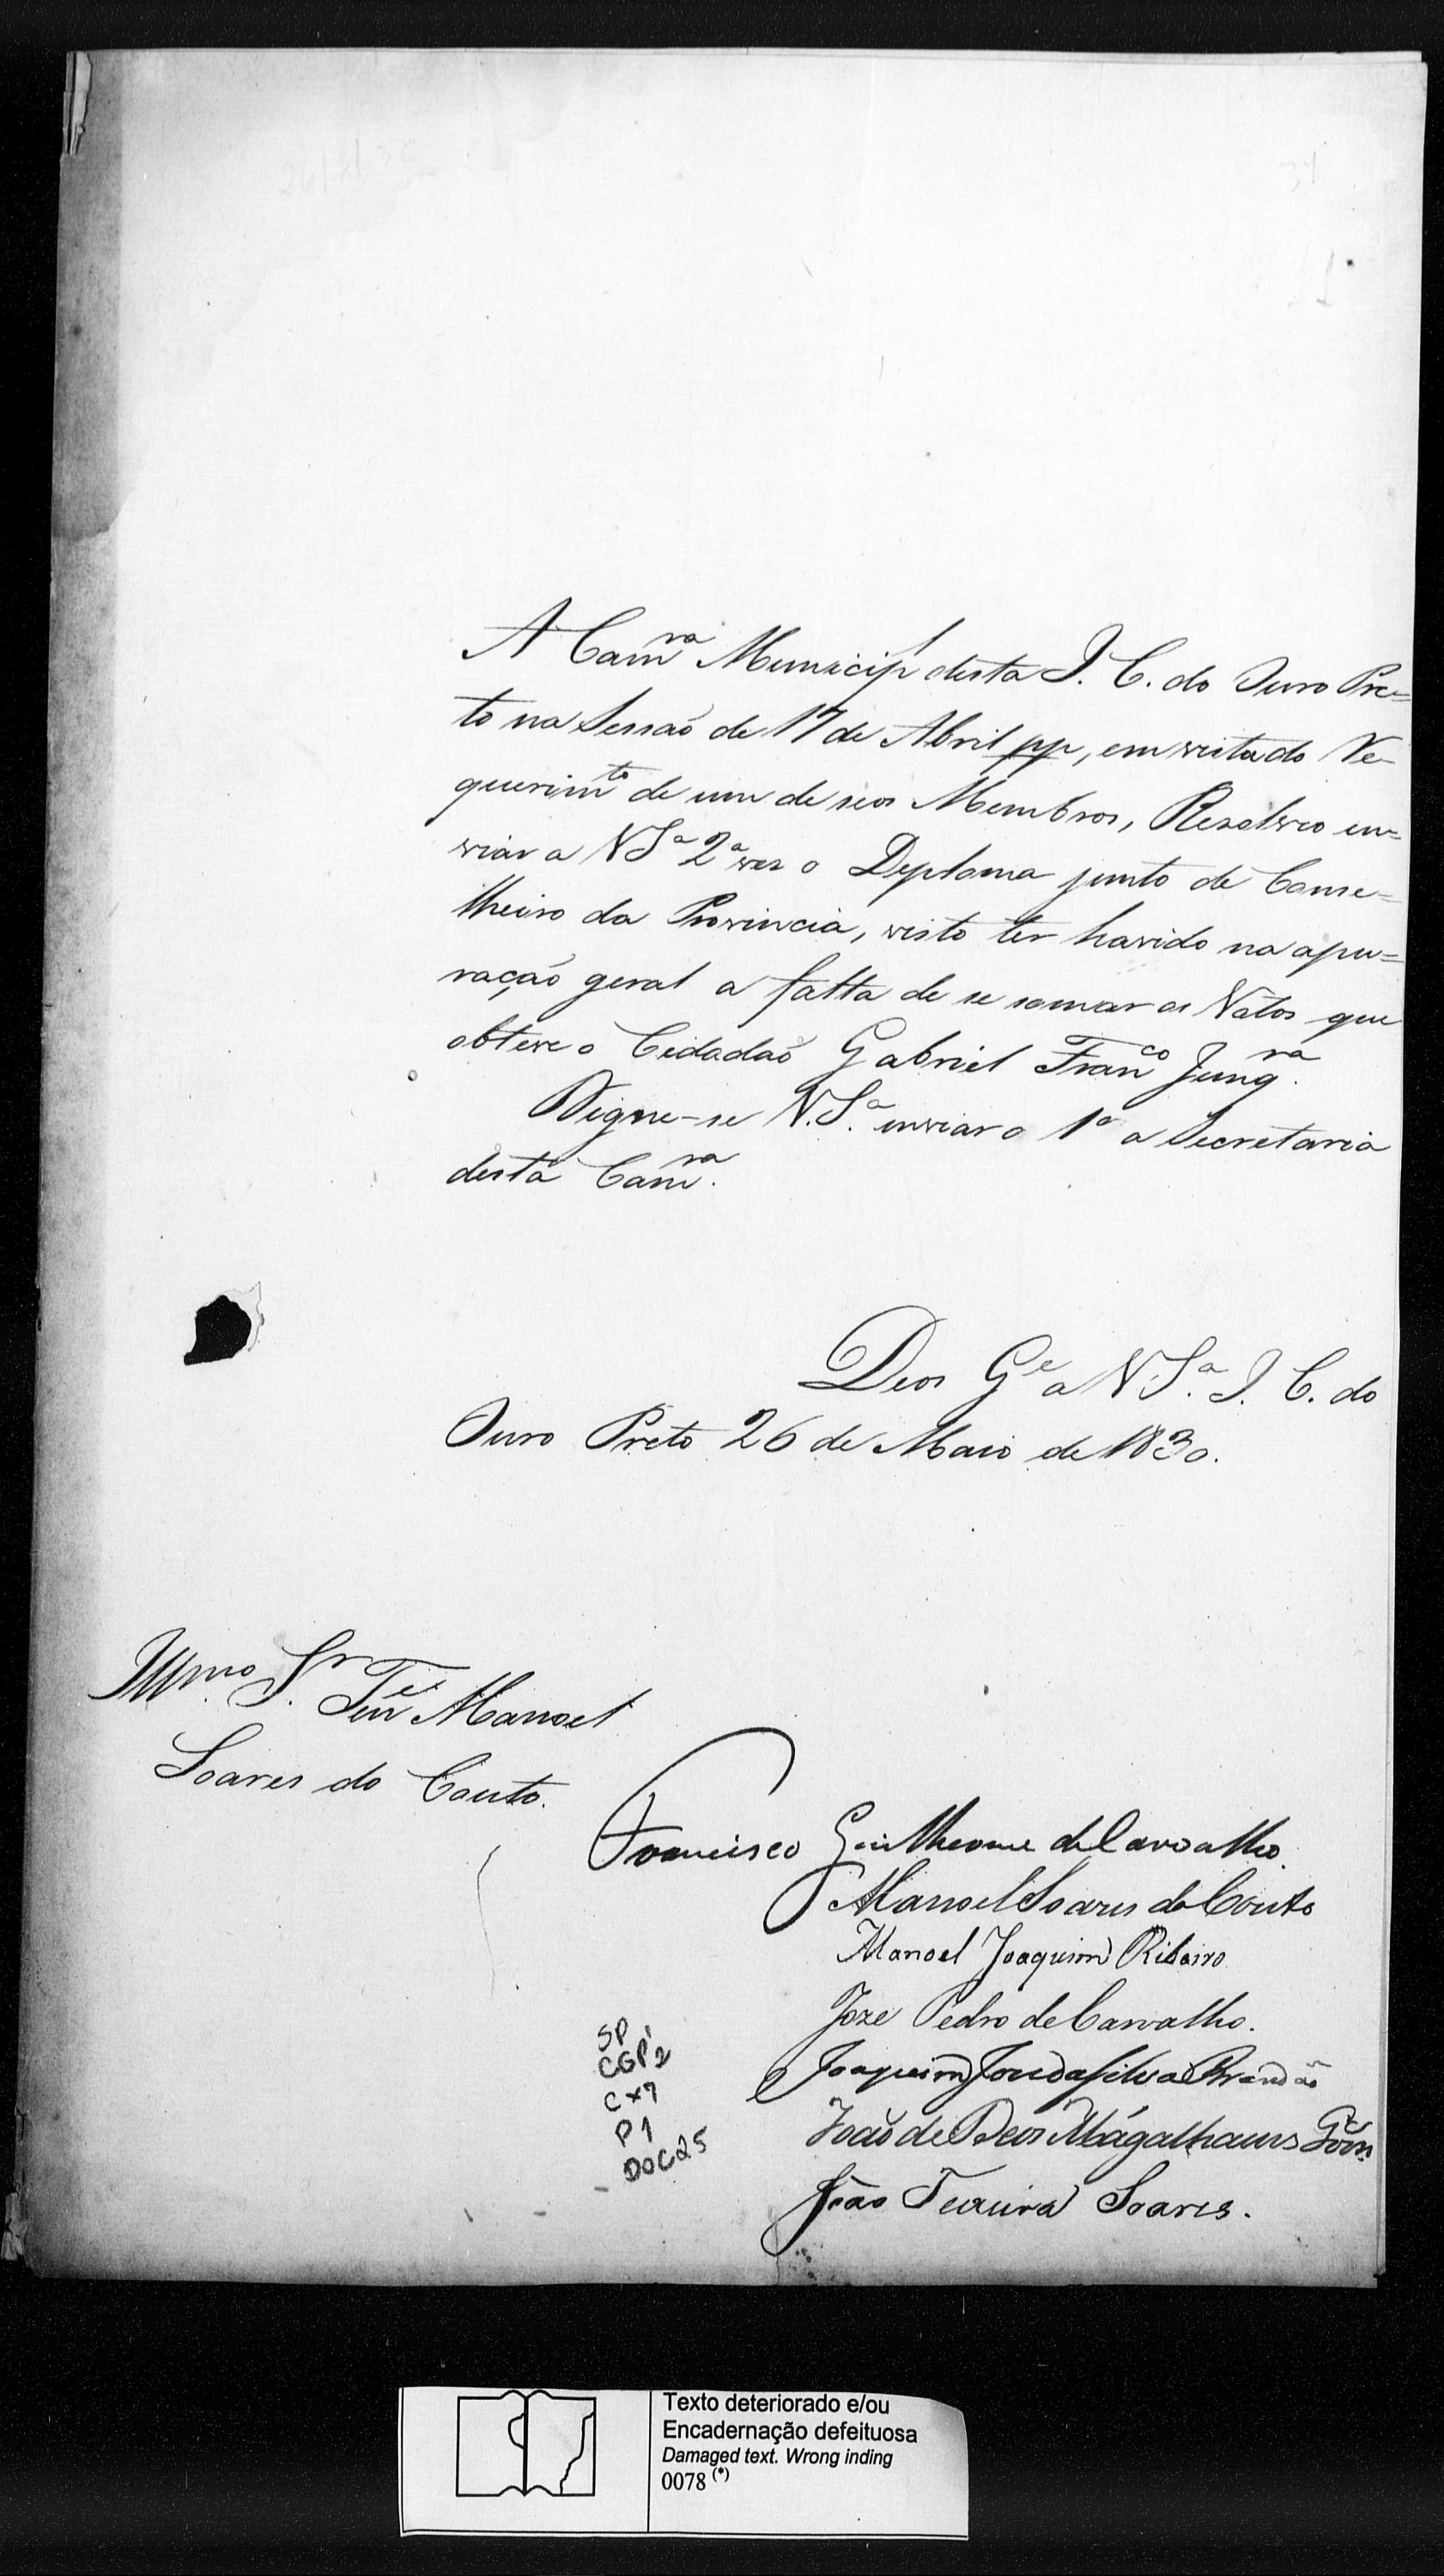 A Cam.ra Municip.l desta I. C. do Ouro Pre=
to na Sessaõ de 17 de Abril pp, em vista do Re-
querim.to de um de seos Membros, Resolveo en=
viar a V S.a 2.a vez o Deploma junto de Conse=
lheiro da Provincia, visto ter havido na apu=
raçaõ geral a falta de se somar os Votos que
obteve o Cidadaõ Gabriel Fran.co Junq.ra
Digne-se V. S.a enviar o 1º a Secretaria
desta Cam.ra
Deos G.e a V S.a I. C. do
Ouro Preto 26 de Maio de 1830.
Illmo. Sr. Ten.e Manoel
Soares do Couto.
Francisco Guilherme de Carvalho.
Manoel Soares do Couto
Manoel Joaquim Ribeiro
Joze Pedro de Carvalho.
Joaquim Joze da Silva Brandaõ
Joaõ de Deos Magalhaens
Joaõ Teixeira Soares.
SP
CGP¹2
CX7
P1
DOC25
Texto deteriorado e/ou
Encadernação defeituosa
Damaged text. Wrong inding
0078 (*)